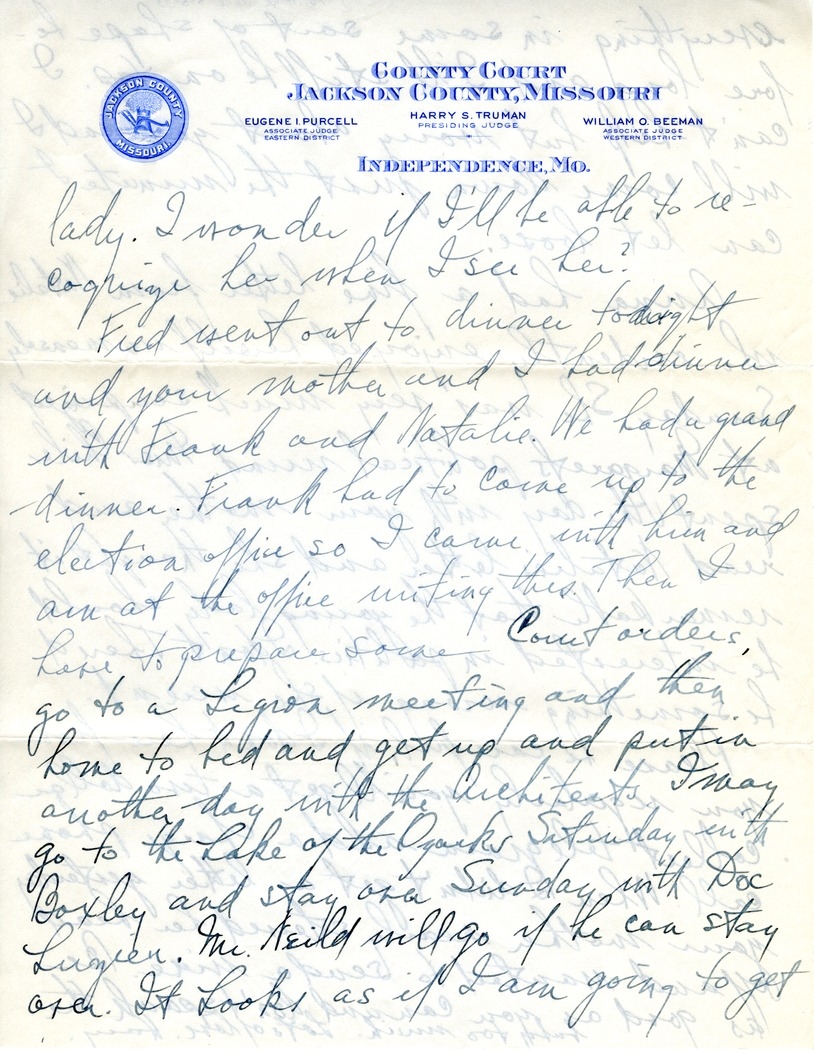 COUNTY COURT
JACKSON COUNTY, MISSOURI
JACKSON COUNTY
MISSOURI
EUGENE I. PURCELL
ASSOCIATE JUDGE
EASTERN DISTRICT
HARRY S. TRUMAN
PRESIDING JUDGE
WILLIAM O. BEEMAN
ASSOCIATE JUDGE
WESTERN DISTRICT
INDEPENDENCE, MO.
lady. I wonder if I'll be able to re-
cognize her when I see her?
Fred went out to dinner tonight
and your mother and I had dinner
with Frank and Natalie. We had a grand
dinner. Frank had to come up to the
election office so I came with him and
am at the office writing this. Then I
have to prepare some Court orders,
go to a Legion meeting and then
home to bed and get up and put in
another day with the Architects. I may
go to the Lake of the Ozarks Saturday with
Boxley and stay over Sunday with Doc
Luzier. Mr. Neild will go if he can stay
over. It looks as if I am going to get